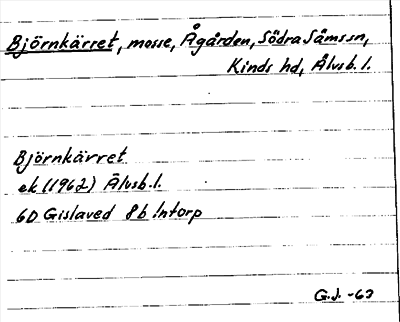 Björnkärret, mosse, Ågården, Södra Såms sn,
Kinds hd, Älvsb. l.
Björnkärret
ek (1962) Älvsb. l.
6D Gislaved 8b Intorp
G.J. -63